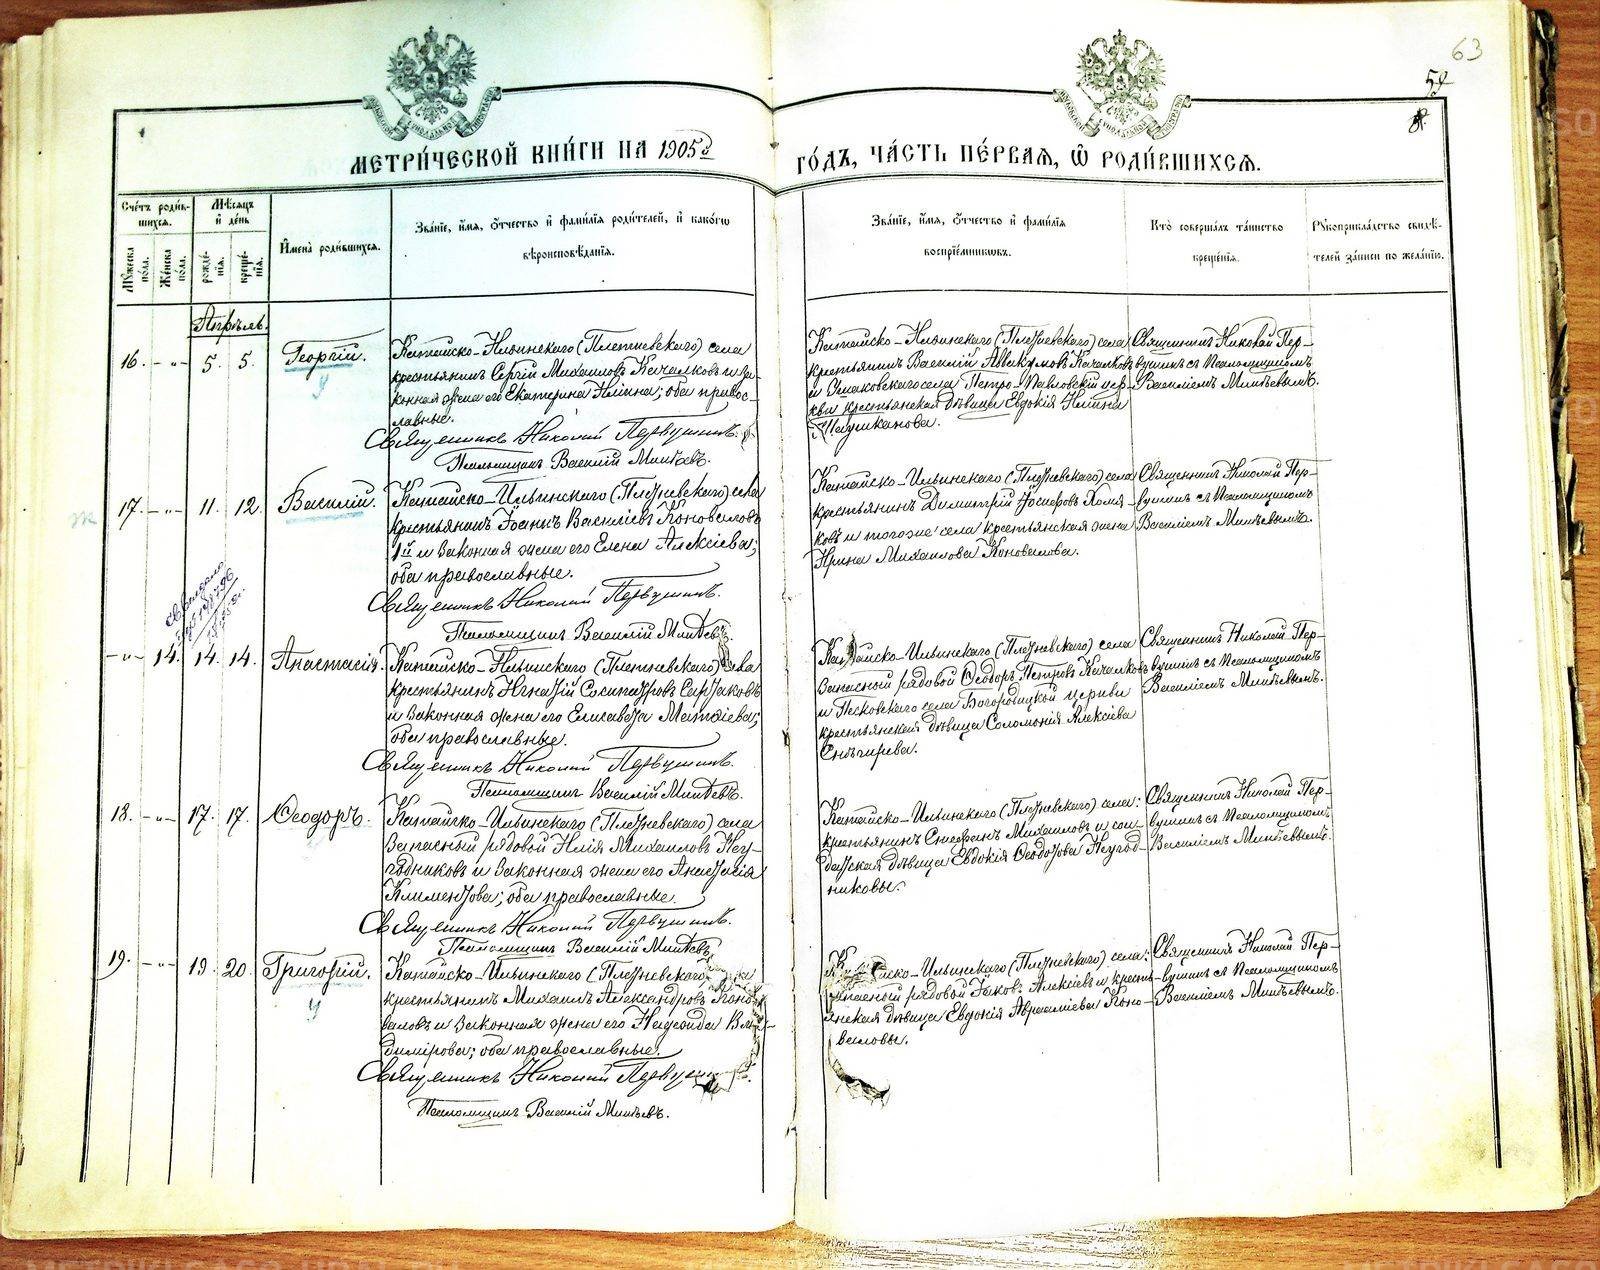 63
МЕТРИ́ЧЕСКОЙ КНИ́ГИ НА 1905й
ГО́ДЪ, ЧА́СТЬ ПЕ́РВАЯ, Ѽ РОДИ́ВШИХСЯ.
Сче́тъ роди́в-
шихся.
Му́жеска по́ла.
Же́нска по́ла.
Мѣ́сяцъ
и҆ де́нь
рожде́-
нія.
креще́-
нія.
И҆мена̀ роди́вшихся.
Зва́ніе, и҆́мя, ѻ҆́тчество и҆ фами́лія роди́телей, и҆ како́гѡ
вѣроисповѣ́данія.
Зва́ніе, и҆́мя, ѻ҆́тчество и҆ фами́лія
воспріе́мниковъ.
Кто̀ соверша́лъ та́инство
креще́нія.
Рꙋкоприкла́дство свидѣ́-
телей за́писи по жела́нію.
Апрѣль.
16. — „ — 5. 5. Георгій.
Катайско-Ильинскаго (Плетневскаго) села
крестьянинъ Сергій Михаиловъ Качалковъ и за-
конная жена его Екатерина Ильина; оба правос-
лавные.
Священникъ Николай Первушинъ.
Псаломщикъ Василій Минѣевъ.
Катайско-Ильинскаго (Плетневскаго) села
крестьянинъ Василій Аввакумовъ Качалковъ
и Ушаковскаго села Петро-Павловскій цер-
кви крестьянская дѣвица Евдокія Ильина
Священникъ Николай Пер-
вушинъ съ Псаломщикомъ
Василіемъ Минѣевымъ.
17. — „ — 11. 12. Василій.
Катайско-Ильинскаго (Плетневскаго) села
крестьянинъ Іоаннъ Василіевъ Коноваловъ
1й и законная жена его Елена Алексіева;
оба православные.
Священникъ Николай Первушинъ.
Псаломщикъ Василій Минѣевъ.
Катайско-Ильинскаго (Плетневскаго) села
крестьянинъ Димитрій Іосифовъ Холя-
ковъ и тогоже села крестьянская жена
Ирина Михаилова Коновалова.
Священникъ Николай Пер-
вушинъ съ Псаломщикомъ
Василіемъ Минѣевымъ.
— „ — 14. 14. 14. Анастасія.
Катайско-Ильинскаго (Плетневскаго) села
крестьянинъ Игнатій Сосипатровъ Сартаковъ
и законная жена его Елисавета Матѳіева;
оба православные.
Священникъ Николай Первушинъ.
Псаломщикъ Василій Минѣевъ.
Катайско-Ильинскаго (Плетневскаго) села
Запасный рядовой Ѳеодоръ Петровъ Качалковъ
и Песковскаго села Богородицкой церкви
крестьянская дѣвица Соломонія Алексіева
Снѣгирева.
Священникъ Николай Пер-
вушинъ съ Псаломщикомъ
Василіемъ Минѣевымъ.
18. — „ — 17. 17. Ѳеодоръ.
Катайско-Ильинскаго (Плетневскаго) села
Запасный рядовой Илія Михаиловъ Неу-
годниковъ и законная жена его Анастасія
Климентова; оба православные.
Священникъ Николай Первушинъ.
Псаломщикъ Василій Минѣевъ.
Катайско-Ильинскаго (Плетневскаго) села:
крестьянинъ Стефанъ Михаиловъ и сол-
датская дѣвица Евдокія Ѳеодотова Неугод-
никовы.
Священникъ Николай Пер-
вушинъ съ Псаломщикомъ
Василіемъ Минѣевымъ.
19. — „ — 19. 20. Григорій.
Катайско-Ильинскаго (Плетневскаго) села
крестьянинъ Михаилъ Александровъ Коно-
валовъ и законная жена его Надежда Вла-
димірова; оба православные.
Священникъ Николай Первушинъ.
Псаломщикъ Василій Минѣевъ.
Катайско-Ильинскаго (Плетневскаго) села:
запасный рядовой Іаковъ Алексіевъ и кресть-
янская дѣвица Евдокія Авраамiева Коно-
валовы.
Священникъ Николай Пер-
вушинъ съ Псаломщикомъ
Василіемъ Минѣевымъ.